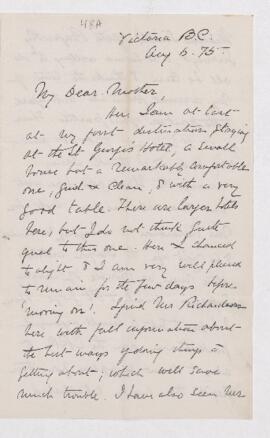 48A
Victoria B.C.
Aug 6. 75
My Dear Mother,
Here I am at last
at my first destination staying
at the St. George's Hotel, a small
house but a remarkably comfortable
one, quiet & clean, & with a very
good table. There are larger hotels
here, but I do not think quite
equal to this one. Here I chanced
to alight & I am very well pleased
to remain for the few days before
'moving on'. I find Mr Richardson
here with full information about
the best ways of doing things &
getting about; which will save
much trouble. I have also seen Mr